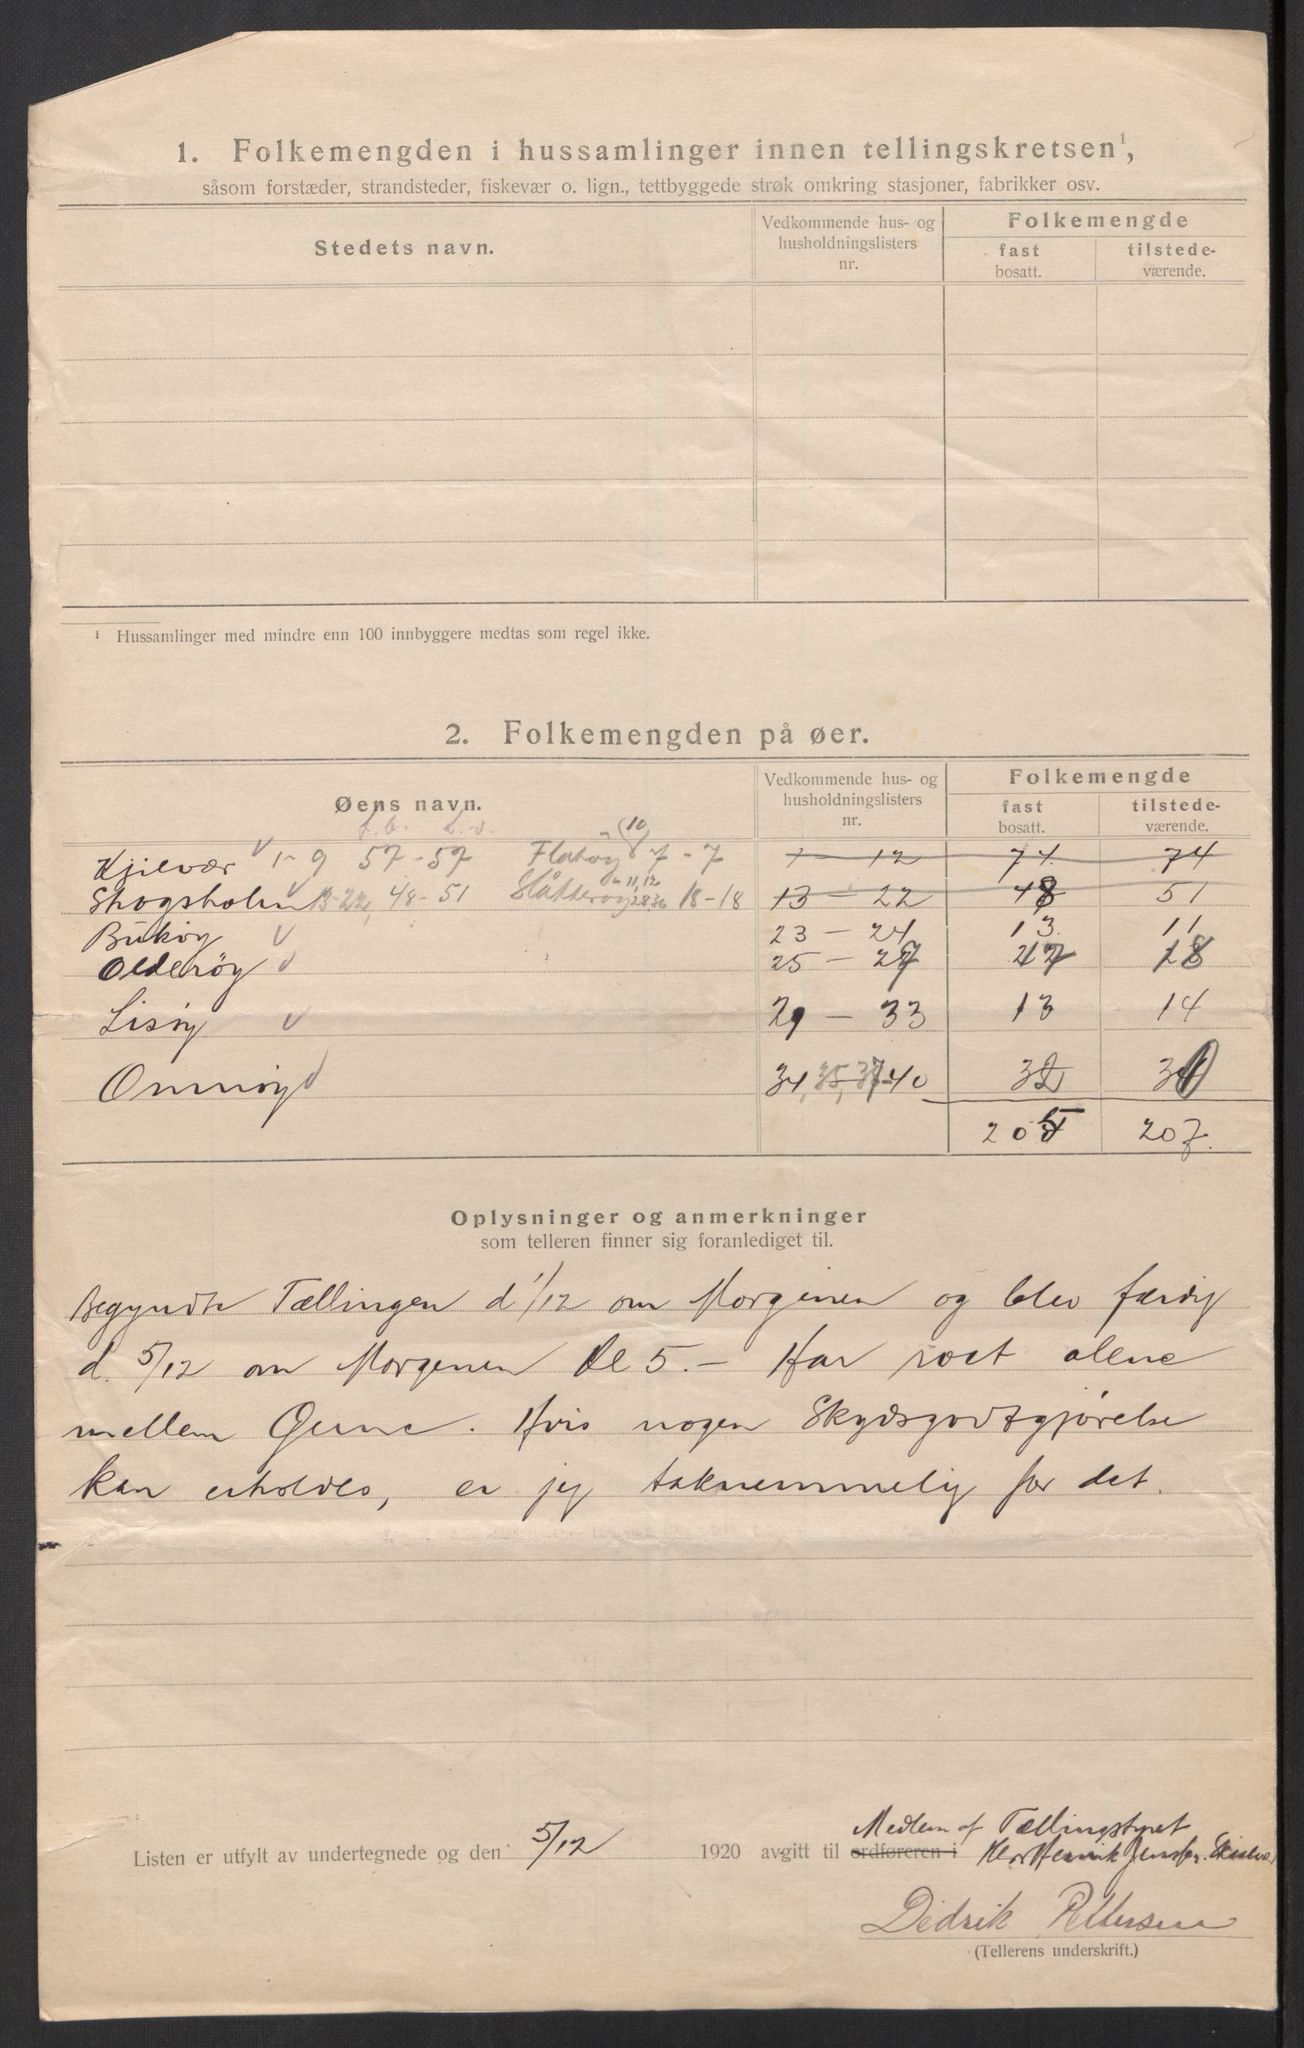 1. Folkemengden i hussamlinger innen tellingskretsen¹,
såsom forstæder, strandsteder, fiskevær o. lign., tettbyggede strøk omkring stasjoner, fabrikker osv.
Stedets navn. Vedkommende hus- og husholdningslisters nr. Folkemengde
fast bosatt. tilstede-værende.
¹ Hussamlinger med mindre enn 100 innbyggere medtas som regel ikke.
2. Folkemengden på øer.
Øens navn. Vedkommende hus- og husholdningslisters nr. Folkemengde
fast bosatt. tilstede-værende.
f.b. t.v. (10)
Kjilvær v 1- 9 57 - 57 Flatøy 7 - 7 1 - 12 74 74
Skogsholm v 13-22, 48 - 51 Slåtterøy 11,12 28 36 18 - 18 13 - 22 48 51
Bukøy v 23 - 24 13 11
Olderøy v 25 - 27
Lisøy v 29 - 33 13 14
Omnøy v 34, 35, 37-40 32
205 207.
Oplysninger og anmerkninger
som telleren finner sig foranlediget til.
Begyndte Tællingen d 1/12 om Morgenen og blev færdig
d. 5/12 om Morgenen Kl 5. - Har roet alene
mellem Øerne. Hvis nogen Skydsgodtgjørelse
kan erholdes, er jeg taknemmelig for det.
Medlem af Tællingstyret
Listen er utfylt av undertegnede og den 5/12 1920 avgitt til ordføreren i Herr Henrik Jensen.
Didrik Pettersen
(Tellerens underskrift.)